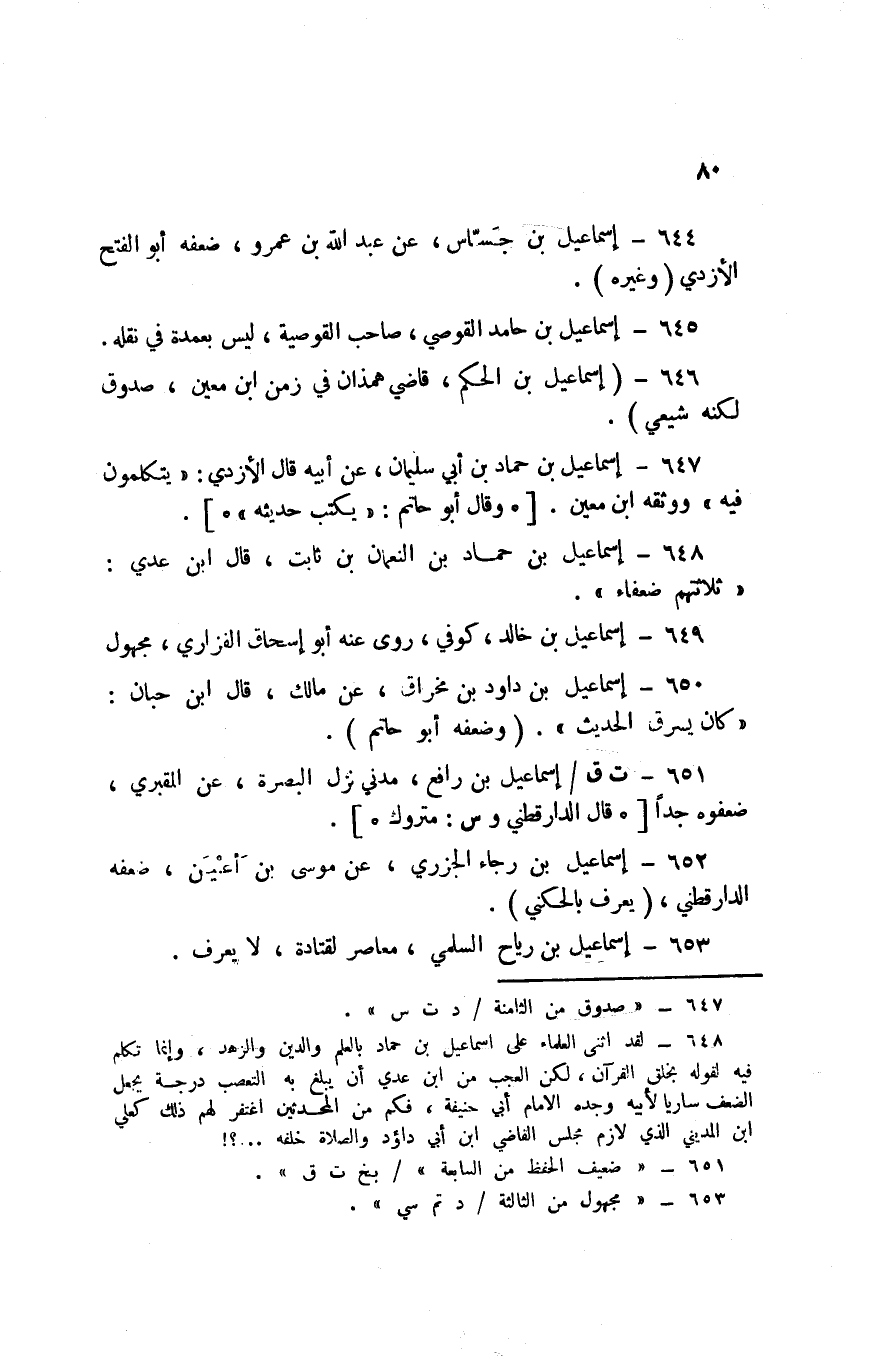 ٨٠
٦٤٤ – إسماعيل بن جَسَّاس ، عن عبد الله بن عمرو ، ضعفه أبو الفتح
الأزدي ( وغيره ) .
٦٤٥ – إسماعيل بن حامد القوصي ، صاحب القوصية ، ليس بعمدة في نقله .
٦٤٦ – ( إسماعيل بن الحكم ، قاضي همذان في زمن ابن معين ، صدوق
لكنه شيعي ) .
٦٤٧ – إسماعيل بن حماد بن أبي سليمان ، عن أبيه قال الأزدي : « يتكلمون
فيه » ووثقه ابن معين . [ ٥ وقال أبو حاتم : « يكتب حديثه » ٥ ] .
٦٤٨ – إسماعيل بن حماد بن النعمان بن ثابت ، قال ابن عدي :
« ثلاثتهم ضعفاء » .
٦٤٩ – إسماعيل بن خالد ، كوفي ، روى عنه أبو إسحاق الفزاري ، مجهول
٦٥٠ – إسماعيل بن داود بن مخراق ، عن مالك ، قال ابن حبان :
« كان يسرق الحديث » . ( وضعفه أبو حاتم ) .
٦٥١ – ت ق / إسماعيل بن رافع ، مدني نزل البصرة ، عن المقبري ،
ضعفوه جداً [ ٥ قال الدارقطني و س : متروك ٥ ] .
٦٥٢ – إسماعيل بن رجاء الجزري ، عن موسى بن أَعْيَن ، ضعفه
الدارقطني ، ( يعرف بالحكني ) .
٦٥٣ – إسماعيل بن رياح السلمي ، معاصر لقتادة ، لا يعرف .
٦٤٧ – « صدوق من الثامنة / د ت س » .
٦٤٨ – لقد اثنى العلماء على اسماعيل بن حماد بالعلم والدين والزهد ، وإنما تكلم
فيه لقوله بخلق القرآن ، لكن العجب من ابن عدي أن يبلغ به التعصب درجة يجعل
الضعف ساريا لأبيه وجده الامام أبي حنيفة ، فكم من المحدثين اغتفر لهم ذلك كعلي
ابن المديني الذي لازم مجلس القاضي ابن أبي داؤد والصلاة خلفه ...؟!
٦٥١ – « ضعيف الحفظ من السابعة » / بخ ت ق » .
٦٥٣ – « مجهول من الثالثة / د تم سي » .